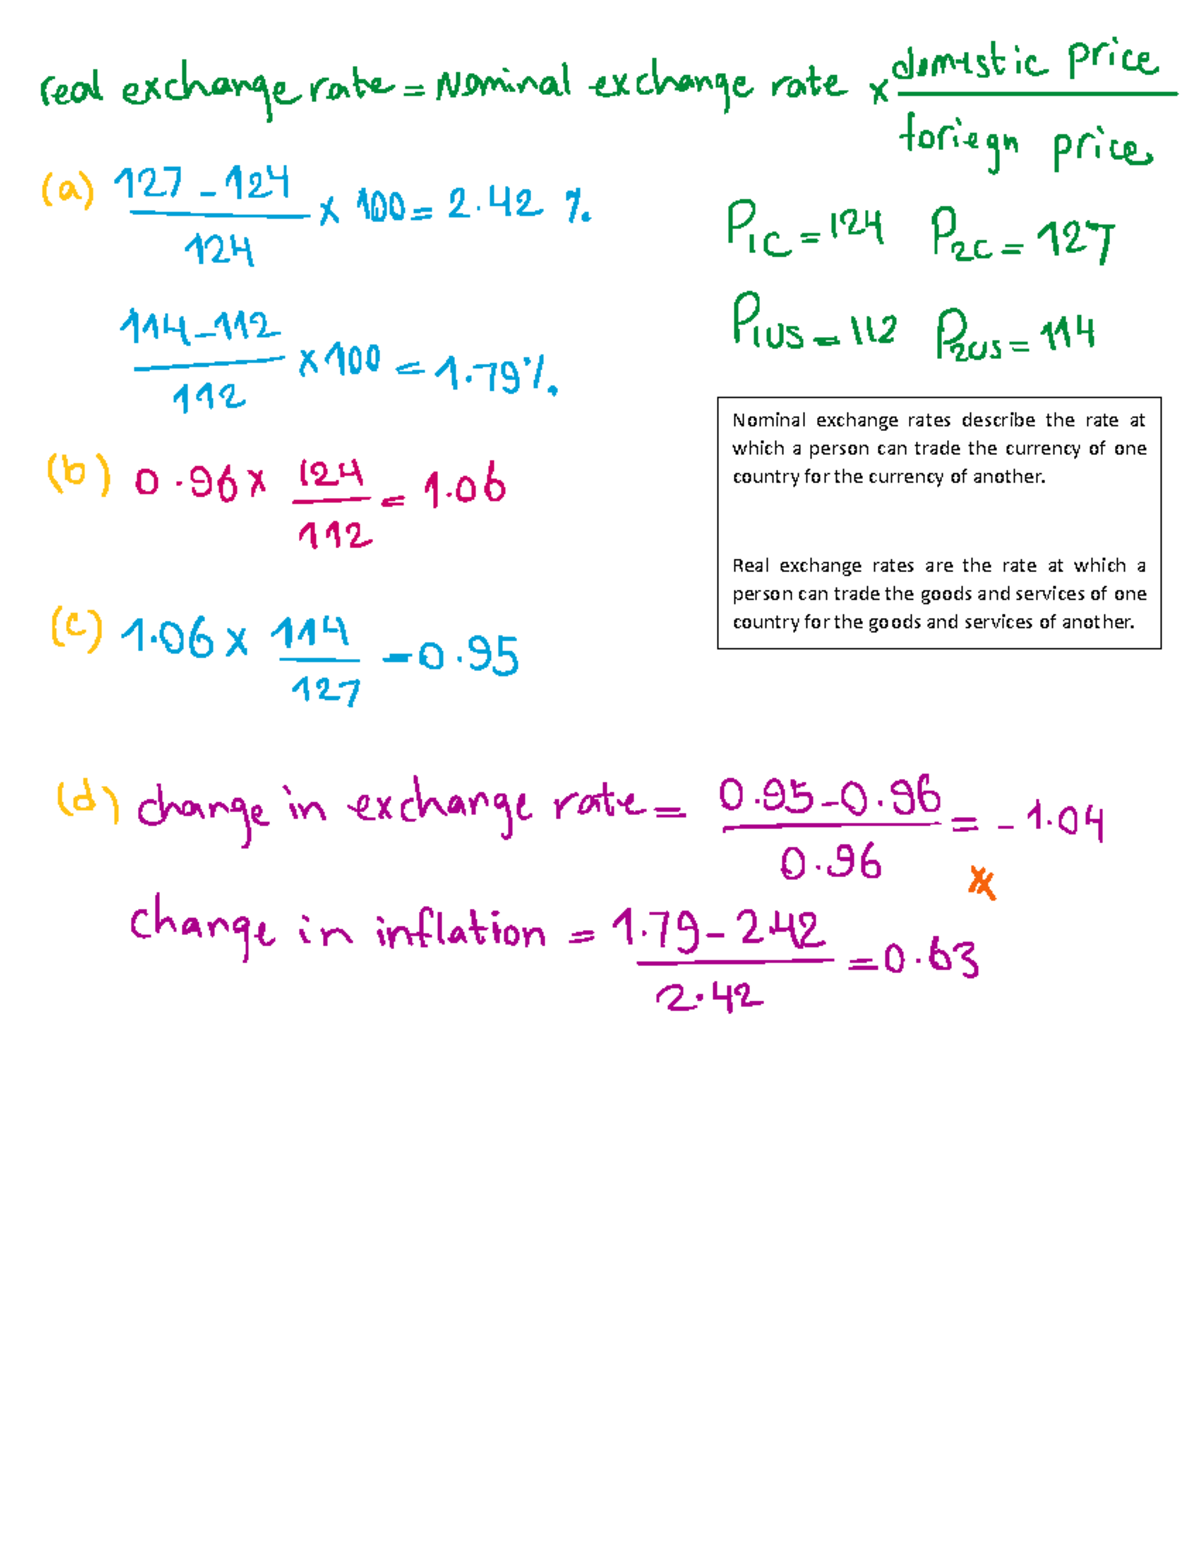 real exchange rate = Nominal exchange rate × domestic price / foriegn price
(a) 127 - 124 / 124 × 100 = 2.42 %.
P1C = 124 P2C = 127
114 - 112 / 112 × 100 = 1.79%.
P1US = 112 P2US = 114
Nominal exchange rates describe the rate at
which a person can trade the currency of one
country for the currency of another.
Real exchange rates are the rate at which a
person can trade the goods and services of one
country for the goods and services of another.
(b) 0.96 × 124 / 112 = 1.06
(c) 1.06 × 114 / 127 - 0.95
(d) change in exchange rate = 0.95 - 0.96 / 0.96 = - 1.04
change in inflation = 1.79 - 2.42 / 2.42 = 0.63